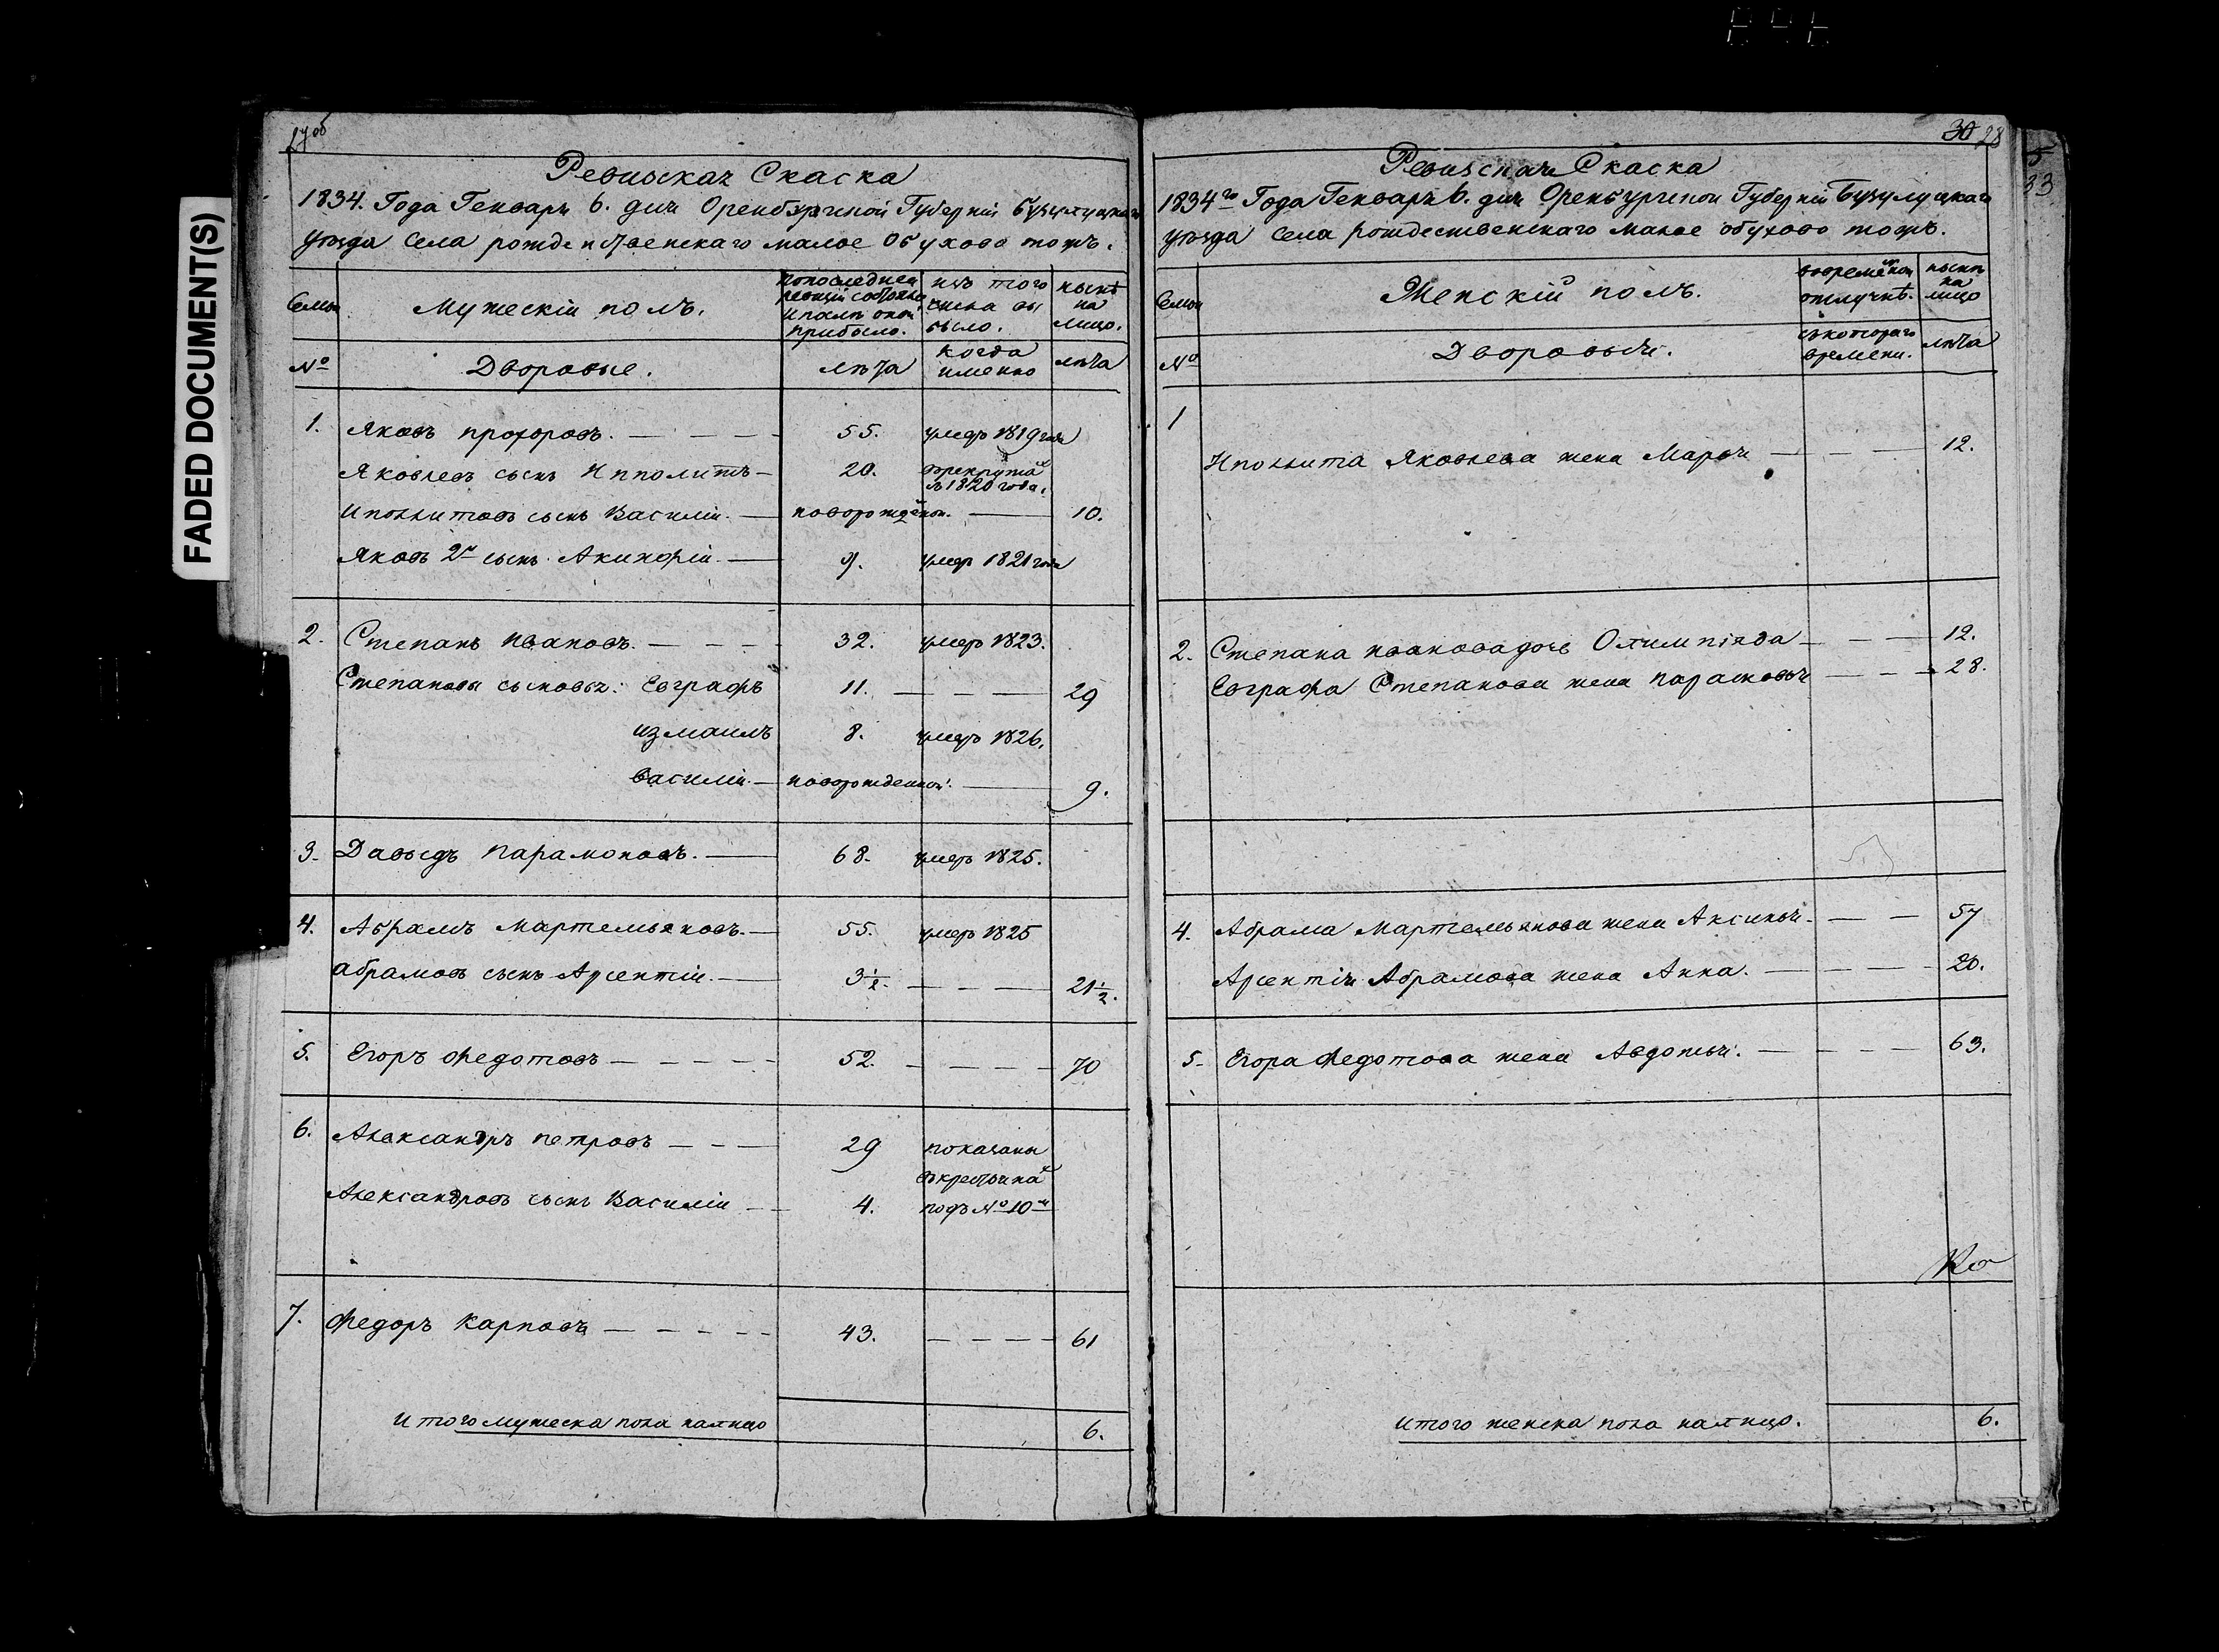 FADED DOCUMENT(S)
27об
Ревизская Скаска
1834. Года Генваря 6. дня Оренбургской Губерніи Бузулуцкаго
уѣзда Села рождественскаго малое Обухово тожъ.
Семьи
Мужескій полъ.
по последней ревизіи состояло и после оной прибыло.
изъ того числа выбыло.
ныне на лицо.
№
Дворовые.
лѣта
когда именно
лѣта
1. Яковъ прохоровъ. 55. умеръ 1819 года
Яковлевъ сынъ Ипполитъ 20. в рекруты в 1820 года.
Иполитовъ сынъ Василій. новорожденой. 10.
Яковъ 2й сынъ Акинфій. 9. умер 1821 года
2. Степанъ ивановъ. 32. умеръ 1823.
Степановы сыновья: Евграфъ 11. 29
измаилъ 8. умеръ 1826.
василій. новорожденной. 9.
3. Давыдъ парамоновъ. 68. умеръ 1825.
4. Абрамъ мартемьяновъ. 55. умеръ 1825
абрамовъ сынъ Арсентій. 3 1/2. 21 1/2.
5. Егоръ Федотовъ 52. 70
6. Александръ петровъ 29 показаны
въкрестьянах
Александровъ сынъ Василій 4. подъ № 10м
7. Федоръ карповъ 43. 61
итого мужеска пола налицо 6.
30 28
Ревизская Скаска
1834го Года Генваря 6. дня Оренбургской Губерніи Бузулуцкаго
уѣзда Села рождественскаго малое обухово тожъ.
Семьи
Женскій полъ.
вовременной отлучкѣ.
ныне на лицо
№
Дворовыя.
съкотораго времени.
лѣта
1
Иполита Яковлева жена Марья 12.
2. Степана иванова дочь Олимпіяда 12.
Евграфа Степанова жена парасковья 28.
4. Абрама Мартемьянова жена Аксинья. 57
Арсентія Абрамова жена Анна. 20.
5. Егора Федотова жена Авдотья. 63.
Ко
итого женска пола налицо. 6.
5
33